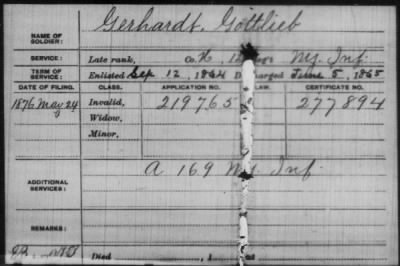 Gerhardt, Gottlieb
NAME OF SOLDIER:
SERVICE: Late rank, Co. H, N.Y. Inf.
TERM OF SERVICE: Enlisted Sep 12, 1864 Discharged June 5, 1865
DATE OF FILING. CLASS. APPLICATION NO. LAW. CERTIFICATE NO.
1876 May 24 Invalid, 219765 277894
Widow,
Minor,
A 169 N.Y. Inf
ADDITIONAL SERVICES:
REMARKS:
Died , 1 at